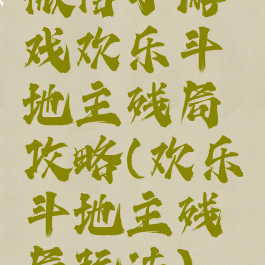 微信小游
戏欢乐斗
地主残局
攻略(欢乐
斗地主残